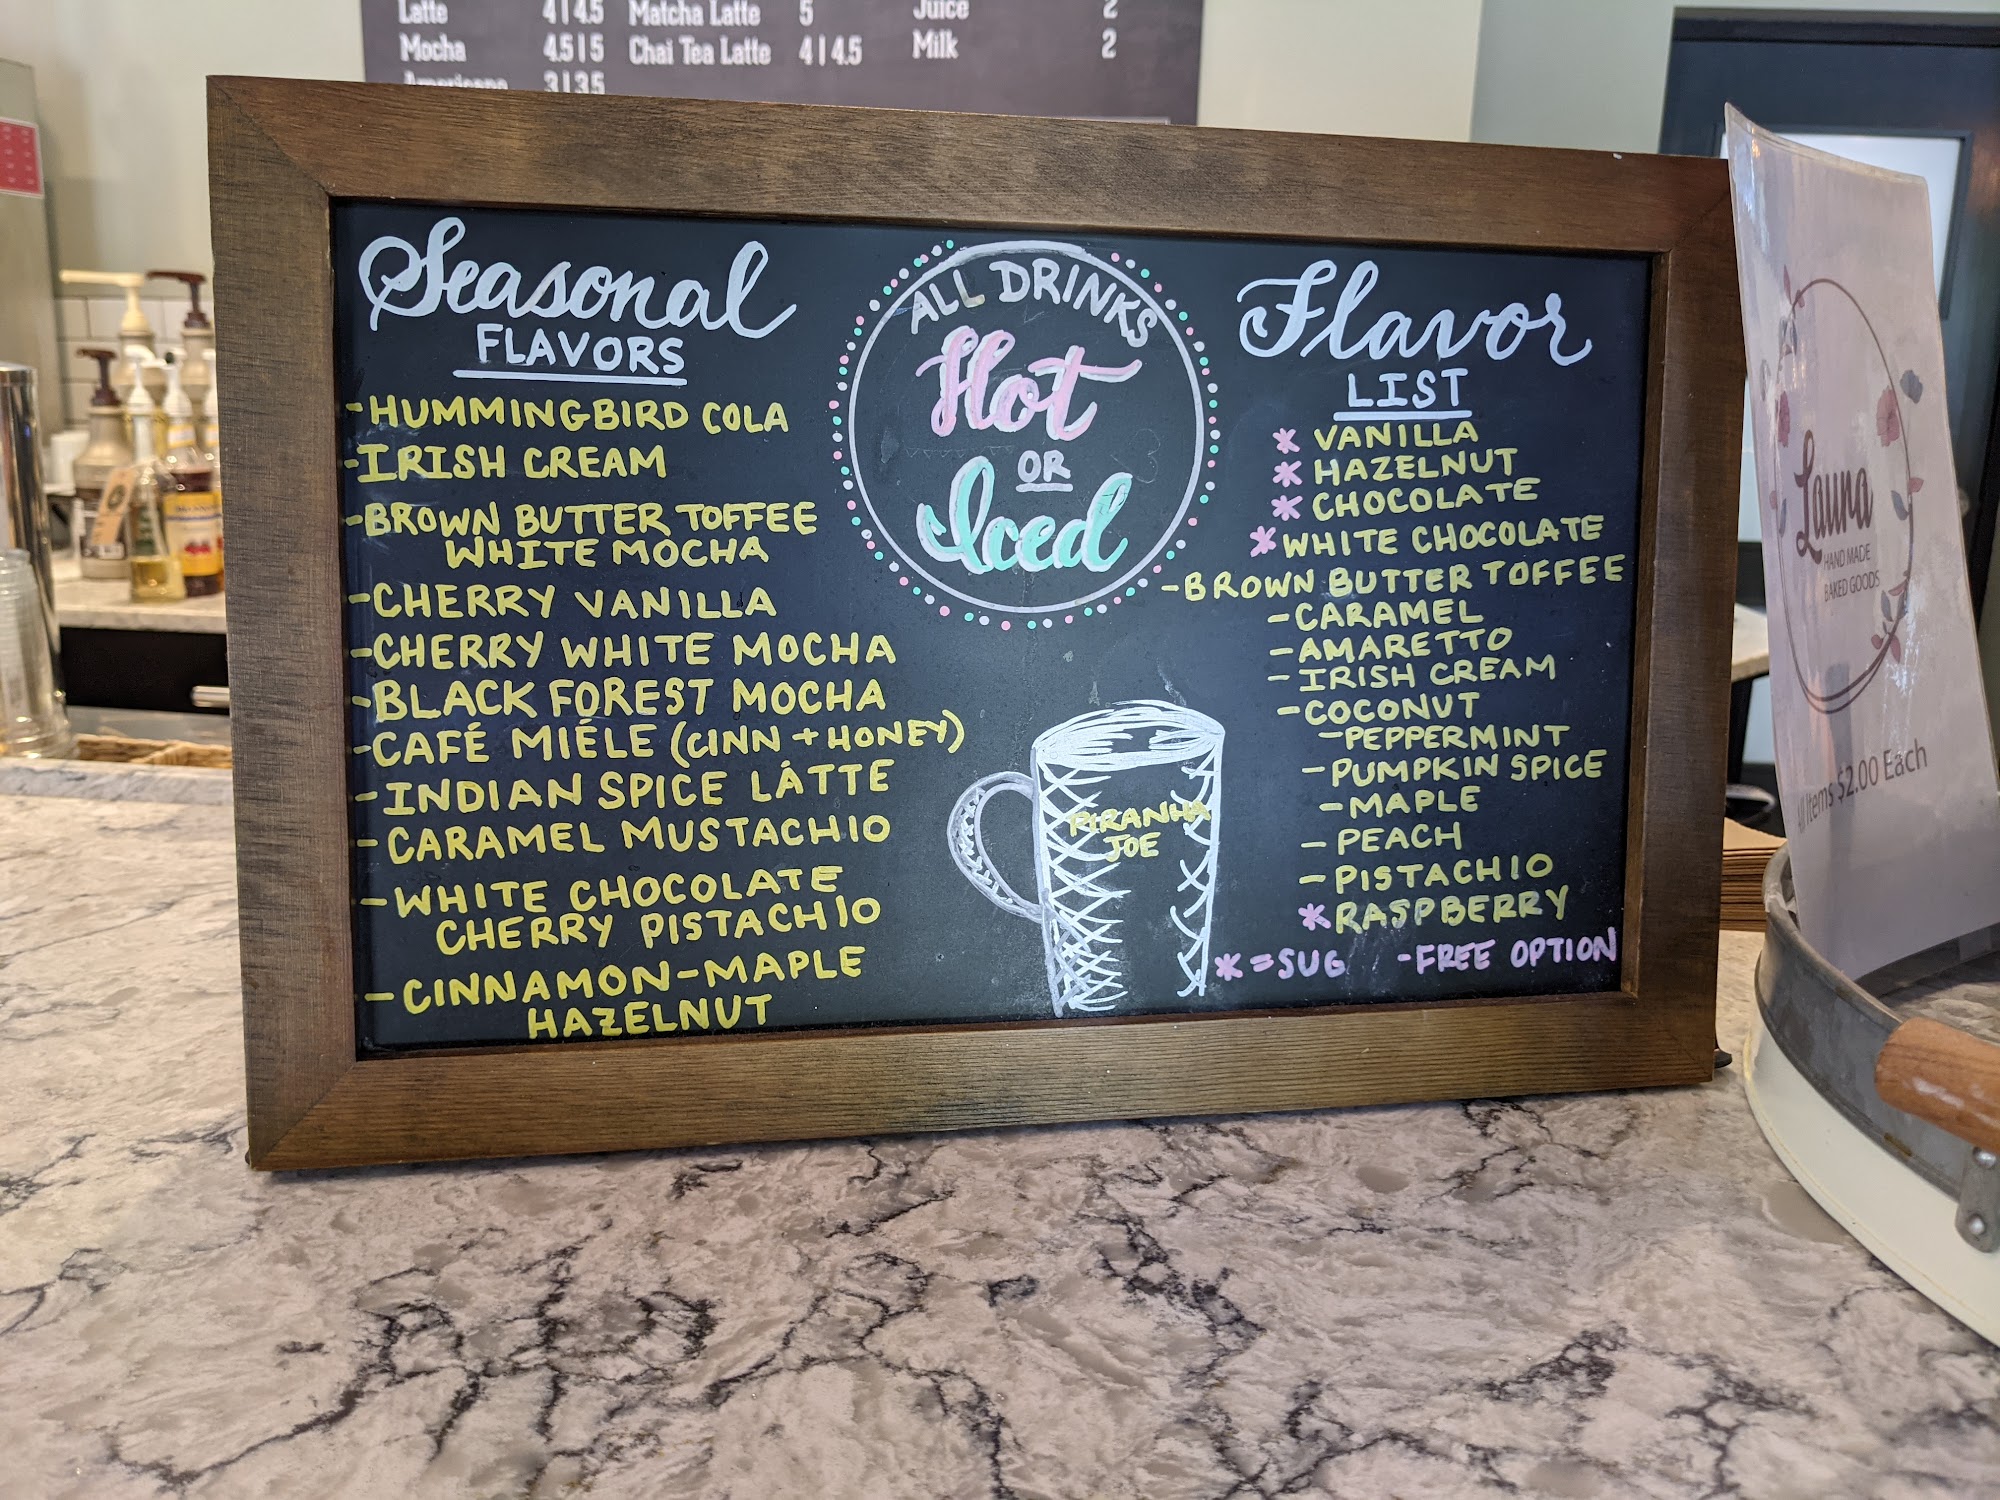 Latte 4 | 4.5 Matcha Latte 5 Juice 2
Mocha 4.5 | 5 Chai Tea Latte 4 | 4.5 Milk 2
Americano 3 | 3.5
Seasonal
FLAVORS
-HUMMINGBIRD COLA
-IRISH CREAM
-BROWN BUTTER TOFFEE
WHITE MOCHA
-CHERRY VANILLA
-CHERRY WHITE MOCHA
-BLACK FOREST MOCHA
-CAFÉ MIÉLE (CINN + HONEY)
-INDIAN SPICE LÁTTE
-CARAMEL MUSTACHIO
-WHITE CHOCOLATE
CHERRY PISTACHIO
-CINNAMON-MAPLE
HAZELNUT
ALL DRINKS
Hot
OR
Iced
PIRANHA
JOE
Flavor
LIST
* VANILLA
* HAZELNUT
* CHOCOLATE
* WHITE CHOCOLATE
-BROWN BUTTER TOFFEE
-CARAMEL
-AMARETTO
-IRISH CREAM
-COCONUT
-PEPPERMINT
-PUMPKIN SPICE
-MAPLE
-PEACH
-PISTACHIO
* RASPBERRY
* =SUG -FREE OPTION
Launa
HAND MADE
BAKED GOODS
All Items $2.00 Each